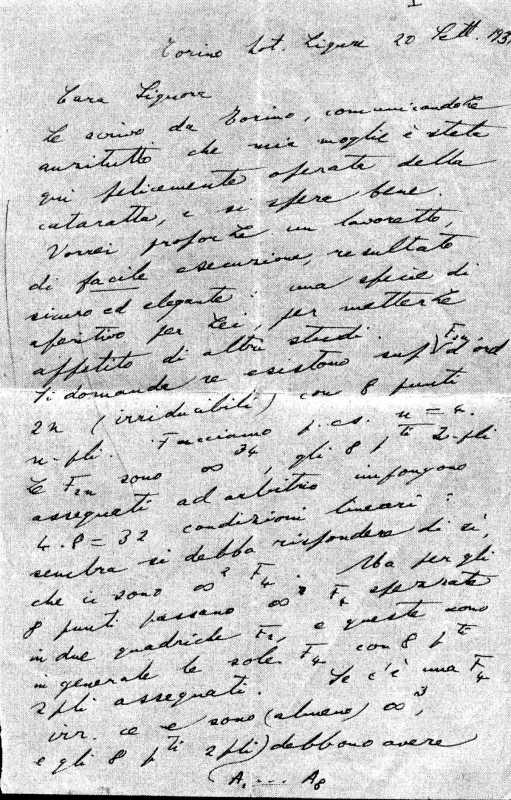 I
Torino Hot. Ligure 20 Sett. 193
Cara Signora
Le scrivo da Torino, comunicandoLe
anzitutto che mia moglie è stata
qui felicemente operata della
cataratta, e si spera bene.
Vorrei proporLe un lavoretto,
di facile esecuzione, resultato
sicuro ed elegante: una specie di
aperitivo per Lei, per metterLe
appetito di altri studi.
Si domanda se esistono sup F2n d'ord
2n (irriducibili) con 8 punti
n-pli. Facciamo p. es. n = 4.
Le F2n sono ∞^34, gli 8 p^ti 2-pli
assegnati ad arbitrio impongono
4.8 = 32 condizioni lineari:
sembra si debba rispondere di sì,
che ci sono ∞^2 F4. Ma per gli
8 punti passano ∞^2 F4 spezzate
in due quadriche F2, e queste sono
in generale le sole F4 con 8 p^ti
2pli assegnati. Se c'è una F4
irr. ce e sono (almeno) ∞^3,
e gli 8 p^ti 2pli) debbono avere
(A1 .... A8